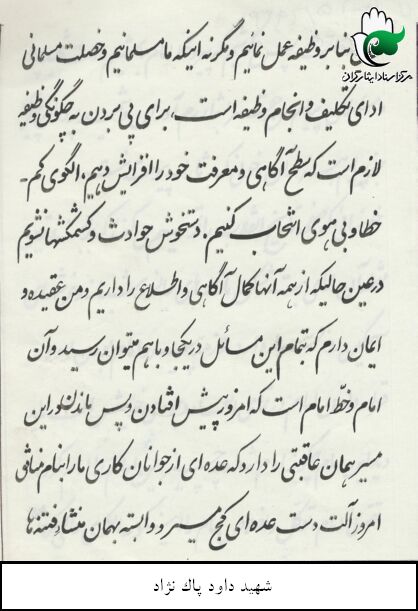 بنا بر وظیفه عمل نمائیم وگرنه اینکه ما مسلمانیم و خصلت مسلمانی
ادای تکلیف و انجام وظیفه است، برای پی بردن به چگونگی وظیفه
لازم است که سطح آگاهی و معرفت خود را افزایش دهیم، الگوی کم-
خطا و بی هوی انتخاب کنیم. دستخوش حوادث و کشمکشها نشویم
درعین حالیکه از همه آنها کمال آگاهی و اطلاع را داریم ومن عقیده و
ایمان دارم که بتمام این مسائل در یکجا و با هم میتوان رسید و آن
امام و خط امام است که امروز پیش افتادن و پس ماندن در این
مسیر همان عاقبتی را دارد که عده ای از جوانان کاری ما را بنام منافق
امروز آلت دست عده ای کج مسیر و وابسته بهمان منشاء فتنه ها
مرکز اسناد ایثارگران
شهید داود پاك نژاد